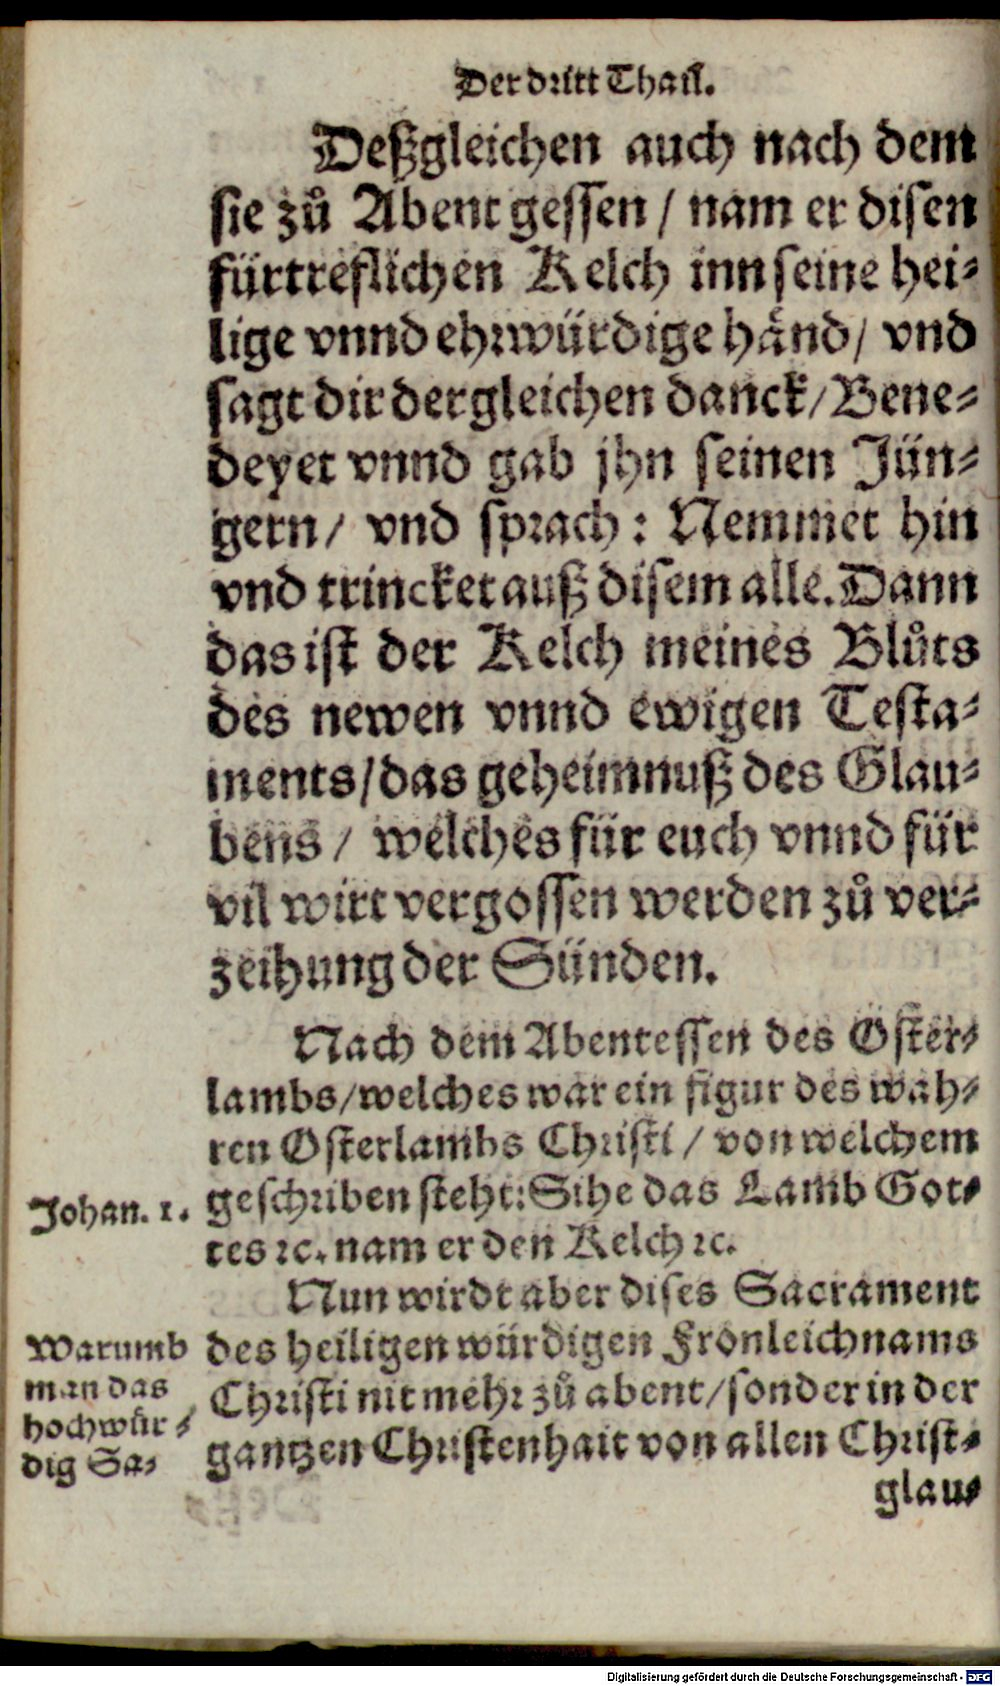 Der dritt Thail.
Deßgleichen auch nach dem
sie zů Abent gessen / nam er disen
fürtreflichen Kelch inn seine hei-
lige vnnd ehrwürdige händ / vnd
sagt dir dergleichen danck / Bene-
deyet vnnd gab jhn seinen Jün-
gern / vnd sprach: Nemmet hin
vnd trincket auß disem alle. Dann
das ist der Kelch meines Blůts
des newen vnnd ewigen Testa-
ments / das geheimnuß des Glau-
bens / welches für euch vnnd für
vil wirt vergossen werden zů ver-
zeihung der Sünden.
Nach dem Abentessen des Oster-
lambs / welches war ein figur des wah-
ren Osterlambs Christi / von welchem
geschriben steht: Sihe das Lamb Got-
Johan. 1.
tes ꝛc. nam er den Kelch ꝛc.
Nun wirdt aber dises Sacrament
des heiligen würdigen Fronleichnams
Christi nit mehr zů abent / sonder in der
gantzen Christenhait von allen Christ-
Warumb
man das
hochwür-
dig Sa-
glau-
Digitalisierung gefördert durch die Deutsche Forschungsgemeinschaft - DFG